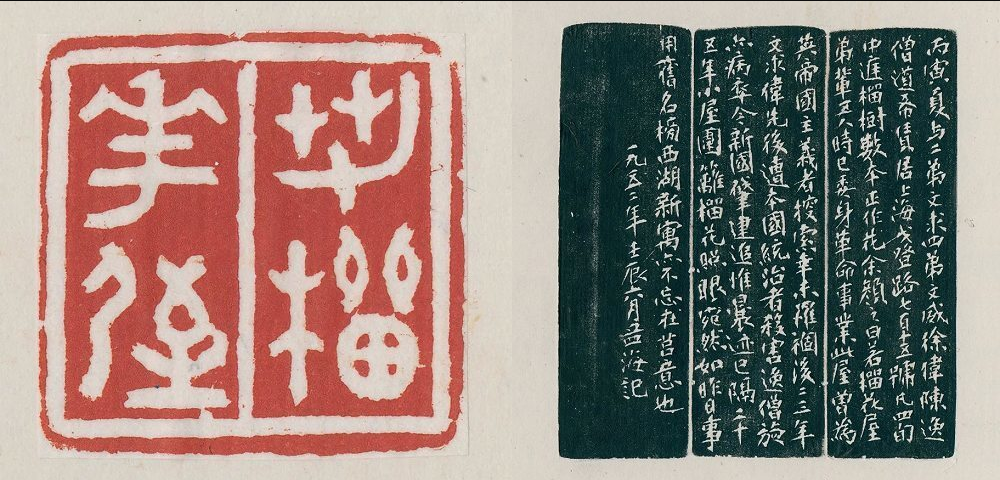 若榴
華屋
丙寅夏与二弟文求四弟文威徐偉陳逸
僧道希僦居上海戈登路七百五號凡四間
中庭榴樹數本正作花余顏之曰若榴花屋
弟輩五六時已委身革命事業此屋曾為
英帝國主義者搜索幸未罹禍後二三年
文求偉先後遭本國統治者殺害逸僧旋
亦病卒今新國肇建追惟曩迹已隔二十
五年小屋圍籬榴花照眼宛然如昨日事
用舊名榜西湖新寓示不忘在莒意也
一九五二年壬辰六月孟海記